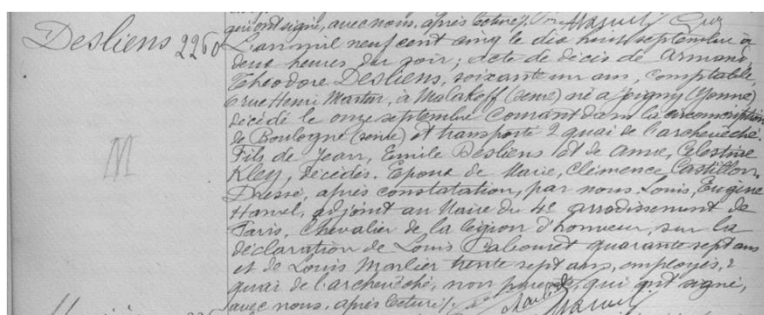 qui ont signé, avec nous, après lecture
Desliens 2260
L'an mil neuf cent cinq le dix huit septembre à
deux heures du soir; acte de décès de Armand,
Théodore Desliens, soixante un ans, comptable,
6 rue Henri Martin, à Malakoff (Seine) né à Joigny (Yonne)
décédé le onze septembre courant dans la circonscription
de Boulogne (Seine) et transporté 2 quai de l'archevêché.
Fils de Jean, Emile Desliens et de Anne, Célestine
Kley, décédés. Epoux de Marie, Clémence Castillon.
Dressé, après constatation, par nous Louis, Eugène
adjoint au Maire du 4e arrondissement de
Paris, Chevalier de la légion d'honneur, sur la
déclaration de Louis quarante sept ans
et de Louis Marlier trente sept ans, employés, 2
quai de l'archevêché, non parents, qui ont signé,
avec nous, après lecture
M